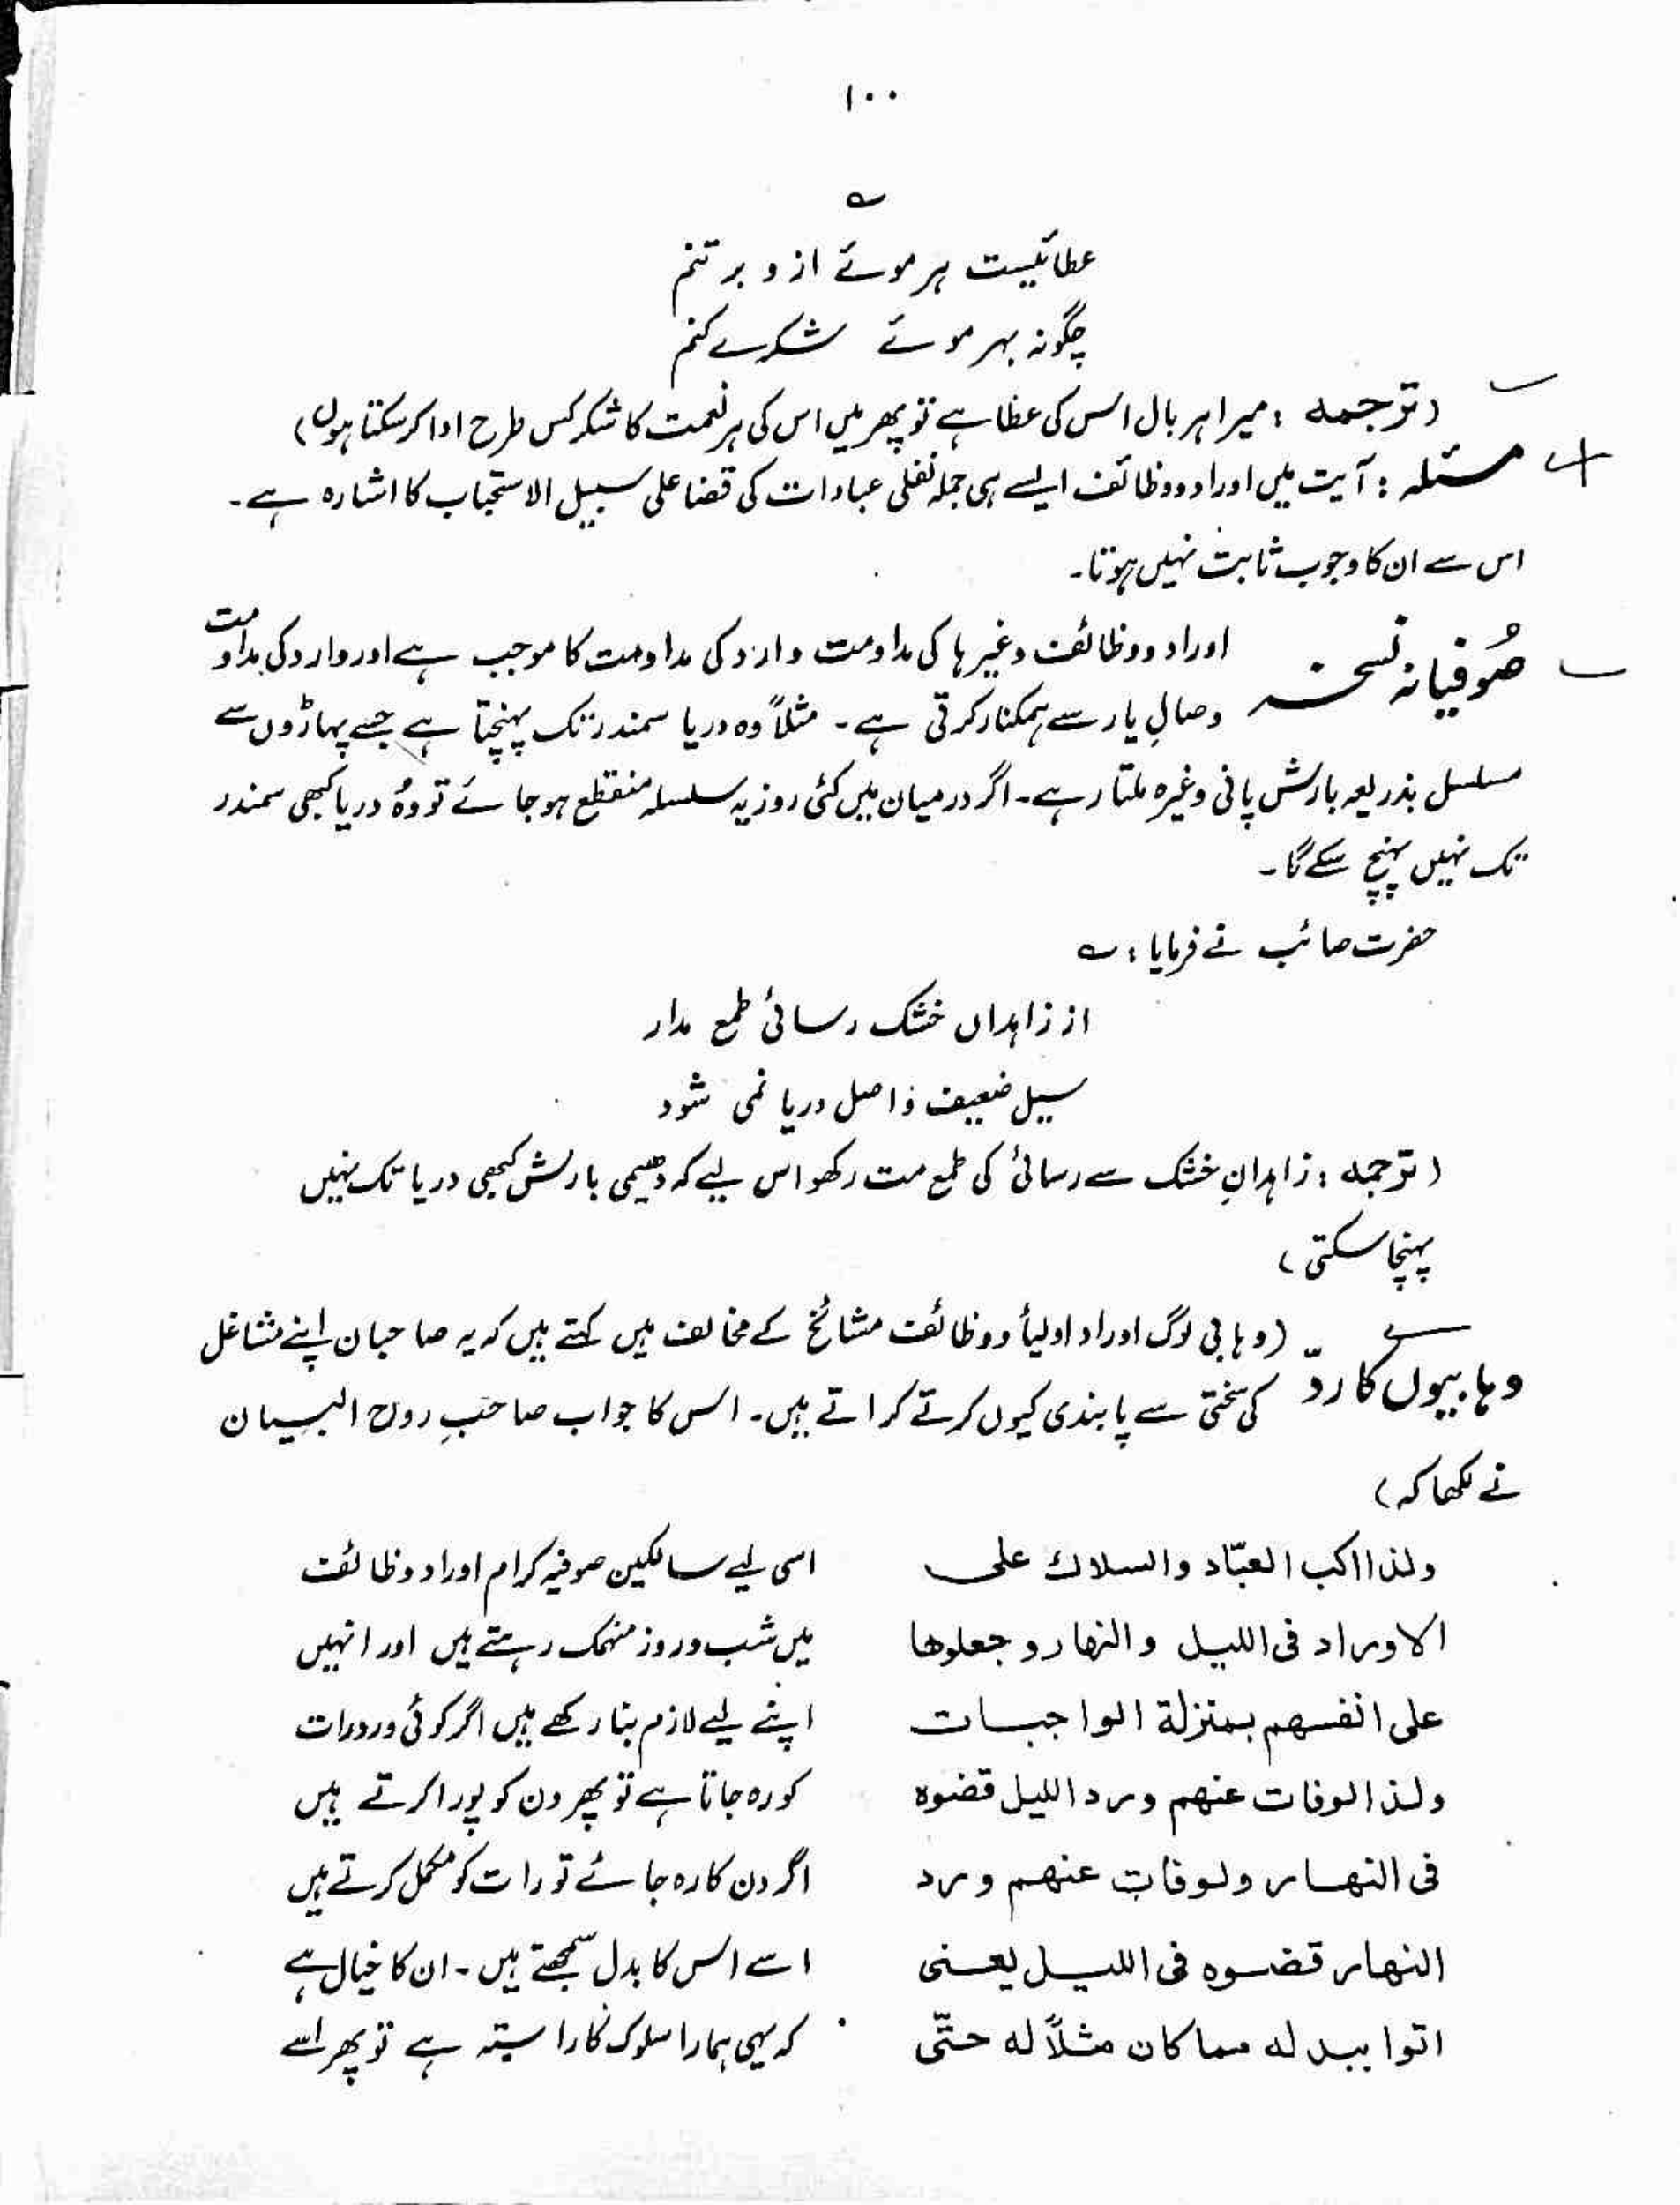 ۱۰۰
؎
عطائیست ہر موئے ازو بر تنم
چگونہ بہر موئے شکرے کنم
(ترجمہ : میرا ہر بال اس کی عطا ہے تو پھر میں اس کی ہر نعمت کا شکر کس طرح ادا کر سکتا ہوں)
مسئلہ : آیت میں اوراد و وظائف ایسے ہی جملہ نفلی عبادات کی قضا علی سبیل الاستحباب کا اشارہ ہے۔
اس سے ان کا وجوب ثابت نہیں ہوتا۔
صُوفیانہ نسخہ اوراد و وظائف وغیرہا کی مداومت وارد کی مداومت کا موجب ہے اور وارد کی مداومت
وصالِ یار سے ہمکنار کرتی ہے۔ مثلاً وہ دریا سمندر تک پہنچتا ہے جسے پہاڑوں سے
مسلسل بذریعہ بارش پانی وغیرہ ملتا رہے۔ اگر درمیان میں کئی روز یہ سلسلہ منقطع ہو جائے تو وہُ دریا کبھی سمندر
تک نہیں پہنچ سکے گا۔
حضرت صائب نے فرمایا : ؎
از زاہداں خشک رسائی طمع مدار
سیل ضعیف واصل دریا نمی شود
(ترجمہ : زاہدانِ خشک سے رسائی کی طمع مت رکھو اس لیے کہ دھیمی بارش کبھی دریا تک نہیں
پہنچا سکتی)
وہابیوں کا ردّ (وہابی لوگ اوراد اولیأ و وظائف مشائخ کے مخالف ہیں کہتے ہیں کہ یہ صاحبان اپنے مشاغل
کی سختی سے پابندی کیوں کرتے کراتے ہیں۔ اس کا جواب صاحبِ روح البیان
نے لکھا کہ)
ولذا اکب العبّاد والسلاك علی
الاوراد فی اللیل والنهار وجعلوها
علی انفسهم بمنزلة الواجبات
ولذا لوفات عنهم ورد اللیل قضوه
فی النهار ولوفات عنهم ورد
النهار قضوه فی اللیل یعنی
اتوا ببدله مما کان مثلاً له حتّی
اسی لیے سالکین صوفیہ کرام اوراد وظائف
میں شب و روز منہمک رہتے ہیں اور انہیں
اپنے لیے لازم بنا رکھے ہیں اگر کوئی ورد رات
کو رہ جاتا ہے تو پھر دن کو پورا کرتے ہیں
اگر دن کا رہ جائے تو رات کو مکمل کرتے ہیں
اسے اس کا بدل سمجھتے ہیں۔ ان کا خیال ہے
کہ یہی ہمارا سلوک کا راستہ ہے تو پھر اسے